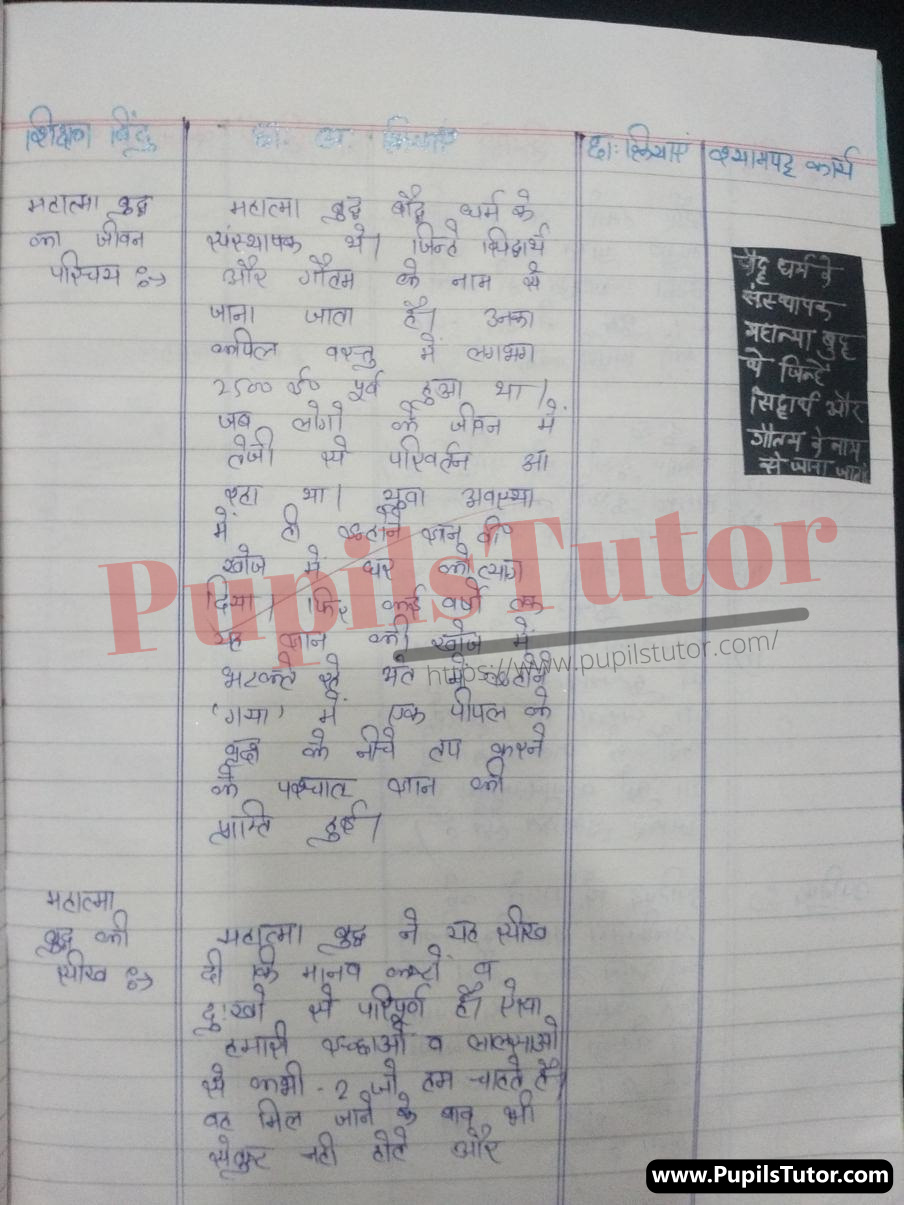 शिक्षण बिंदु
छा. अ. क्रियाएं
छा: क्रियाएं
श्यामपट्ट कार्य
महात्मा बुद्ध
का जीवन
परिचय :->
महात्मा बुद्ध बौद्ध धर्म के
संस्थापक थे। जिन्हे सिद्धार्थ
और गौतम के नाम से
जाना जाता है। उनका
कपिल वस्तु में लगभग
2500 ई० पूर्व हुआ था।
जब लोगो के जीवन में
तेजी से परिवर्तन आ
रहा था। युवा अवस्था
में ही इन्होंने ज्ञान की
खोज में घर को त्याग
दिया। फिर कई वर्षो तक
यह ज्ञान की खोज में
भटकते रहे अंत में इन्होने
'गया' में एक पीपल के
वृक्ष के नीचे तप करने
के पश्चात ज्ञान की
प्राप्ति हुई।
बौद्ध धर्म के
संस्थापक
महात्मा बुद्ध
थे जिन्हें
सिद्धार्थ और
गौतम के नाम
से जाना जाता
महात्मा
बुद्ध की
सीख :->
महात्मा बुद्ध ने यह सीख
दी कि मानव कष्टो व
दु:खो से परिपूर्ण है। ऐसा
हमारी इच्छाओं व लालसाओ
से कभी-2 जो हम चाहते है।
वह मिल जाने के बाद भी
संतुष्ट नही होते और
PupilsTutor
https://www.pupilstutor.com/
www.PupilsTutor.com